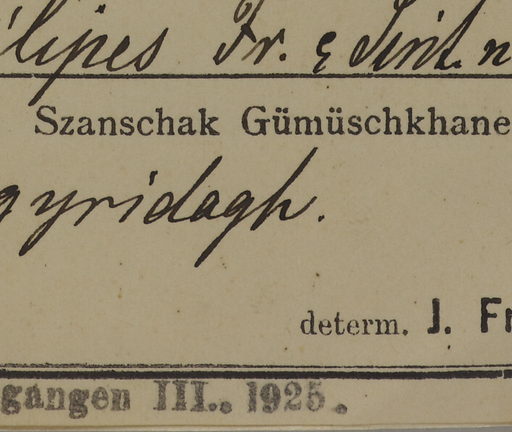 ilipes Fr. & Sint. n
Szanschak Gümüschkhane
gyridagh.
determ. J. Fr
gangen III.. 1925.